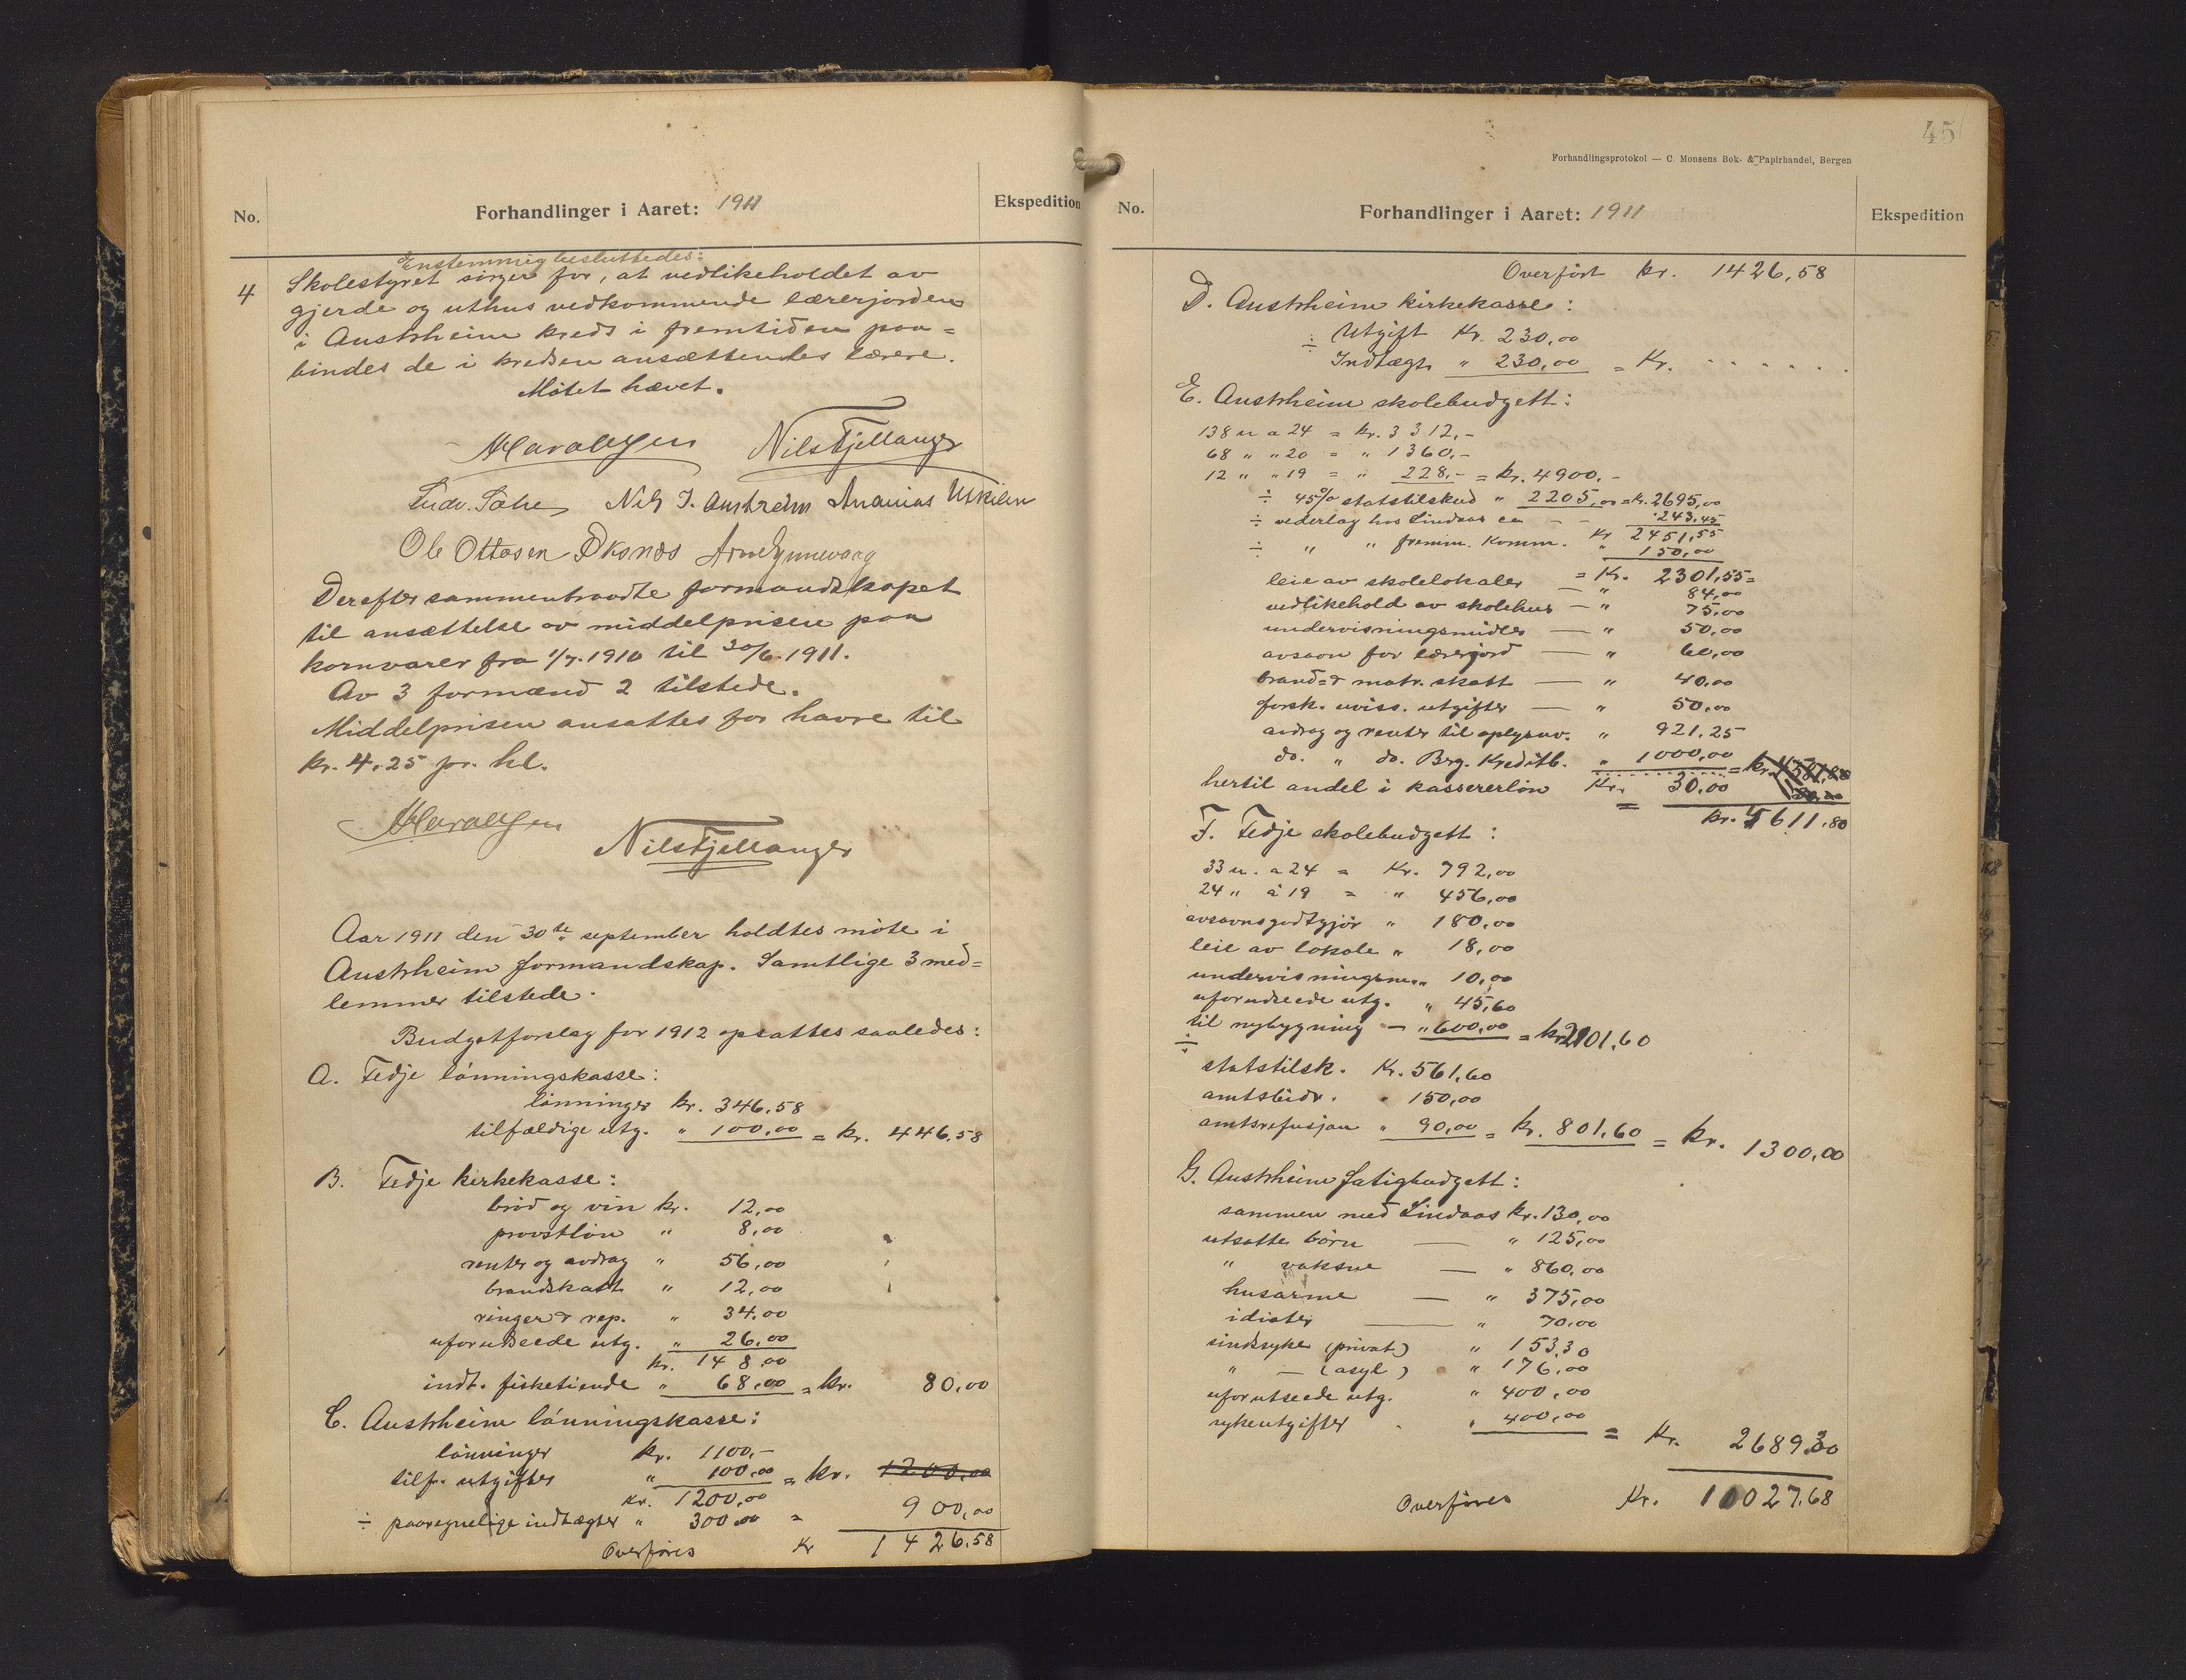 No.
Forhandlinger i Aaret: 1911
Ekspedition
Enstemmig besluttedes:
4 Skolestyret sörger for, at vedlikeholdet av
gjerde og uthus vedkommende lærerjorden
i Austrheim kreds i fremtiden paa=
bindes de i kredsen ansættendes lærere.
Mötet hævet.
Nils Fjellanger
Ludv. Sæhe Nils J. Austrheim Ananias Utkilen
Ole Ottosen Arne Synnevaag
Derefter sammentraadte formandskapet
til ansættelse av middelprisen paa
kornvarer fra 1/7.1910 til 30/6.1911.
Av 3 formænd 2 tilstede.
Middelprisen ansattes for havre til
kr. 4.25 pr. hl.
Nils Fjellanger
Aar 1911 den 30te september holdtes möte i
Austrheim formandskap. Samtlige 3 med=
lemmer tilstede.
Budgetforslag for 1912 opsattes saaledes:
A. Fedje lönningskasse:
lönninger kr. 346,58
tilfældige utg. " 100,00 = kr. 446,58
B. Fedje kirkekasse:
bröd og vin kr. 12,00
provstlön " 8,00
renter og avdrag " 56,00
brandskatt " 12,00
ringer & rep. " 34,00
uforudseede utg. " 26,00
kr. 148,00
indt. fisketiende " 68,00 = kr. 80,00
C. Austrheim lönningskasse:
lönninger kr. 1100,-
tilf. utgifter " 100,00 = kr. 1200,00
kr. 1200,00
÷ paaregnelige indtægter " 300,00 = 900,00
Overföres Kr 1426,58
45
Forhandlingsprotokol — C. Monsens Bok- & Papirhandel, Bergen
No.
Forhandlinger i Aaret: 1911
Ekspedition
Overfört kr. 1426,58
D. Austrheim kirkekasse:
Utgift Kr. 230,00
÷ Indtægt " 230,00 = Kr. . . . . . .
E. Austrheim skolebudgett:
138 u a 24 = kr. 3312,-
68 " " 20 = " 1360,-
12 " " 19 = " 228,- = kr. 4900,-
÷ 45% statstilskud " 2205,00 = kr. 2695,00
÷ vederlag hos Lindaas en — - 243,45
Kr 2451,55
÷ " " fremm. Komm. " 150,00
= Kr. 2301,55=
leie av skolelokaler — " 84,00
vedlikehold av skolehus — " 75,00
undervisningsmidler — " 50,00
avsavn for lærerjord — " 60,00
brand= & matr. skatt — " 40,00
forsk. uviss. utgifter — " 50,00
avdrag og renter til oplysnv. " 921,25
do. " do. Brg. Kreditb. " 1000,00 = kr. 4581,80
hertil andel i kassererlön Kr. 30,00 30,00
= kr. 4611,80
F. Fedje skolebudgett:
33 u. a 24 = Kr. 792,00
24 " à 19 = " 456,00
avsavnsgodtgjör " 180,00
leie av lokale " 18,00
undervisningsm. " 10,00
uforudseede utg. " 45,60
til nybygning — " 600,00 = kr 2101,60
÷
statstilsk. Kr. 561,60
amtsbidr. " 150,00
amtsrefusjon " 90,00 = kr. 801,60 = kr. 1300,00
G. Austrheim fatigbudgett:
sammen med Lindaas kr. 130,00
utsatte börn — " 125,00
" voksne — " 860,00
husarme — " 375,00
idioter — " 70,00
sindssyke (privat) " 153,30
" — (asyl) " 176,00
uforutseede utg. " 400,00
sykeutgifter " 400,00 = Kr. 2689,30
Overföres Kr. 10027,68